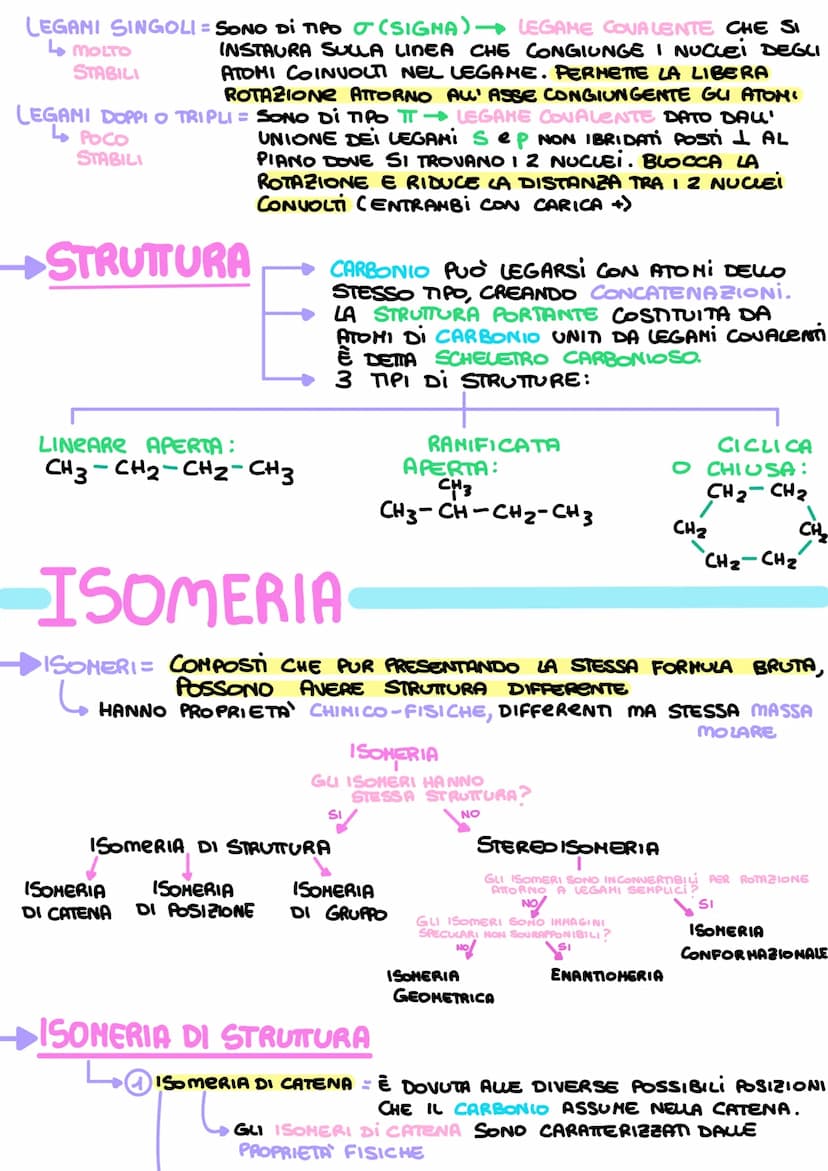 LEGAMI SINGOLI = SONO DI TIPO σ (SIGMA) → LEGAME COVALENTE CHE SI
↳ MOLTO STABILI
INSTAURA SULLA LINEA CHE CONGIUNGE I NUCLEI DEGLI
ATOMI COINVOLTI NEL LEGAME. PERMETTE LA LIBERA
ROTAZIONE ATTORNO ALL'ASSE CONGIUNGENTE GLI ATOMI
LEGAMI DOPPI O TRIPLI = SONO DI TIPO π → LEGAME COVALENTE DATO DALL'
↳ POCO STABILI
UNIONE DEI LEGAMI S e p NON IBRIDATI POSTI ⊥ AL
PIANO DONE SI TROVANO I 2 NUCLEI. BLOCCA LA
ROTAZIONE E RIDUCE LA DISTANZA TRA I 2 NUCLEI
CONVOLTI (ENTRAMBI CON CARICA +)
→ STRUTTURA
CARBONIO PUÒ LEGARSI CON ATOMI DELLO
STESSO TIPO, CREANDO CONCATENAZIONI.
LA STRUTTURA PORTANTE COSTITUITA DA
ATOMI DI CARBONIO UNITI DA LEGAMI COVALENTI
È DETTA SCHELETRO CARBONIOSO.
3 TIPI DI STRUTTURE:
LINEARE APERTA:
CH3-CH2-CH2-CH3
RAMIFICATA
APERTA:
CH3
CH3-CH-CH2-CH3
CICLICA
O CHIUSA:
CH2-CH2
CH2 CH2
CH2-CH2
ISOMERIA
→ ISOMERI = COMPOSTI CHE PUR PRESENTANDO LA STESSA FORMULA BRUTA,
POSSONO AVERE STRUTTURA DIFFERENTE
↳ HANNO PROPRIETA' CHIMICO-FISICHE, DIFFERENTI MA STESSA MASSA
MOLARE
ISOMERIA
GLI ISOMERI HANNO
STESSA STRUTTURA?
SI NO
ISOMERIA DI STRUTTURA
ISOMERIA
DI CATENA
ISOMERIA
DI POSIZIONE
ISOMERIA
DI GRUPPO
STEREOISOMERIA
GLI ISOMERI SONO INCONVERTIBILI PER ROTAZIONE
ATTORNO A LEGAMI SEMPLICI?
NO SI
GLI ISOMERI SONO IMMAGINI
SPECULARI NON SOVRAPPONIBILI?
NO SI
ISOMERIA
CONFORMAZIONALE
ISOMERIA
GEOMETRICA
ENANTIOMERIA
→ ISOMERIA DI STRUTTURA
① ISOMERIA DI CATENA = È DOVUTA ALLE DIVERSE POSSIBILI POSIZIONI
CHE IL CARBONIO ASSUME NELLA CATENA.
↳ GLI ISOMERI DI CATENA SONO CARATTERIZZATI DALLE
PROPRIETA' FISICHE